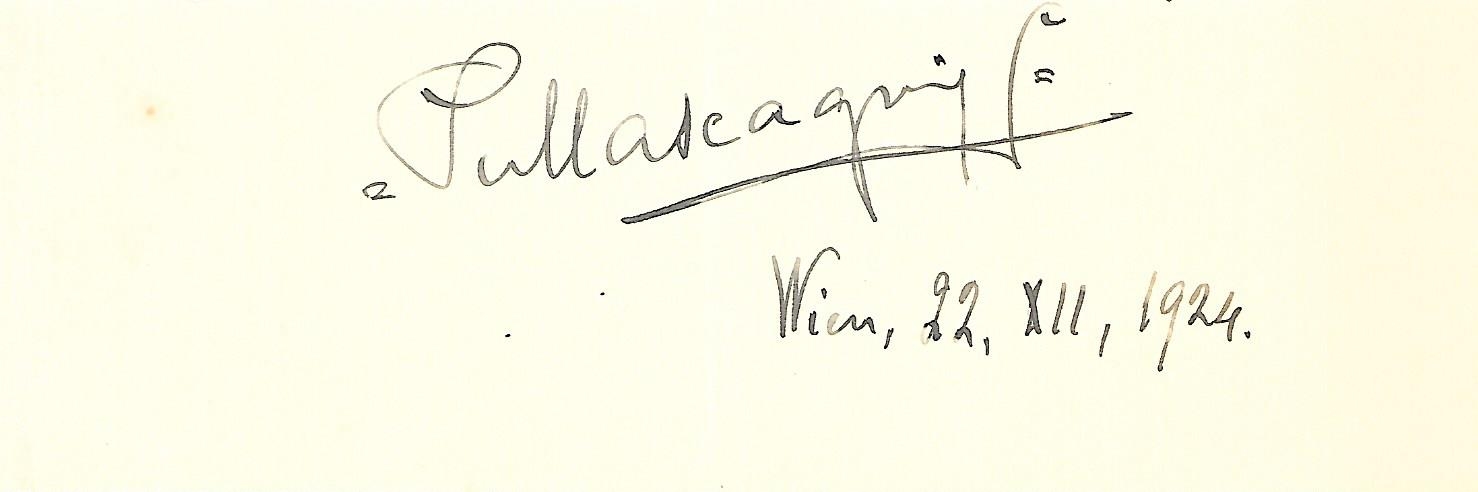 PMascagni
Wien, 22, XII, 1924.